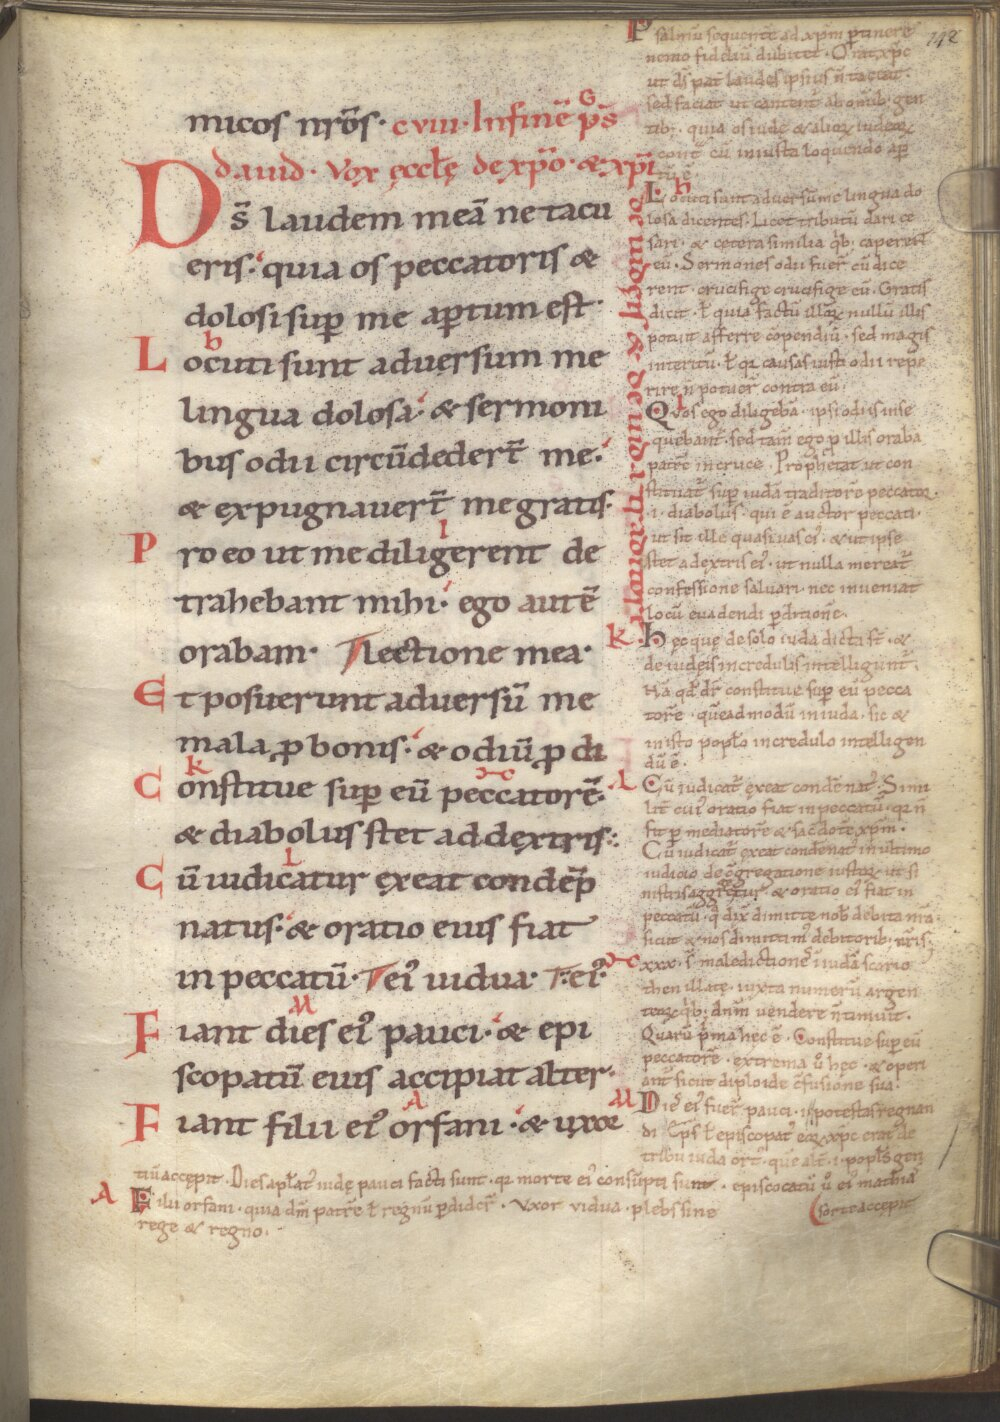 142
micos nr̄os· cviii· Infinē ps̄
G
Dauid· Vox ęccłę dexp̄o· &xpı̄
de unguib; & de
Ds̄ laudem meā ne tacu
eris· quia os peccatoris &
dolosi sup me aptum est·
b
Locuti sunt aduersum me
lingua dolosa· & sermoni
bus odii circūdeder̄t me·
& expugnauer̄t me gratis·
I
Pro eo ut me diligerent de
trahebant mihi· ego autē
orabam· lectione mea·
Et posuerunt aduersū me
mala ꝓ bonis· & odiū ꝓ di
k
Constitue sup eū peccatorē·
& diabolus stet ad dextris·
L
Cū iudicatur ęxeat condēp
natus· & oratio eius fiat
in peccatū· ei' uidua· ei'
M
Fiant dies ei' pauci· & epi
scopatū eius accipiat alter·
A
Fiant filii ei' orfani· & uxor
Psalmū sequentē ad xp̄m ptinere
nemo fideliū dubitet· Orat xp̄c
ut ds̄ pat laudes ipsius n̄ taceat·
sed faciat ut cantent' ab omib; gen
tib;· quia os iudę & alioꝝ iudeoꝝ
cont̄ eū iniusta loquendo ap
tū ē·
h
Locuti sunt aduersū me lingua do
losa dicentes· Licet tributū dari ce
sari· & cetera similia qib; caperent
eū· Sermones odii fuer̄ cū dice
rent· crucifige crucifige eū· Gratis
dicit· ł quia factū illoꝝ nullū illis
potuit afferre cōpendiū· sed magis
interitū· ł qꝛ causas iusti odii repe
rire n̄ potuer̄ contra eū·
I
Quos ego diligebā· ipsi odiis inse
quebant'· sed tam̄ ego ꝓ illis oraba
patrē in cruce· Prophetat ut con
stituat' sup iudā traditorē peccator·
·i· diabolus· qui ē auctor peccati·
ut sit ille quasi uas ei'· & ut ipse
stet a dextris ei'· ut nulla mereat'
confessione saluari· nec inueniat
locū euadendi pditionē·
k
Hęc quę de solo iuda dicta st̄· &
de iudeis incredulis intelligunt'·
Nā qd' dr̄ constitue sup eū pecca
torē· quēadmodū in iuda· sic &
in isto popło incredulo intelligen
dū ē·
L
Cū iudicat' ęxeat condēnat'· Simi
lit̄ cui' oratio fiat in peccatū· qꝛ n̄
fit p mediatorē & sacdotē xp̄m·
Cū iudicat' ęxeat condēnat' in ultimo
iudicio de cōgregatione iustoꝝ ut si
nistris aggreget'· & oratio ei' fiat in
peccatū· q̄ dix̄ dimitte nob̄ debita nr̄a·
sicut & nos dimittim' debitorib; nr̄is·
xxx· s̄ maledictiones iudā scario
then illatę· iuxta numerū argen
teoꝝ qib; dn̄m uendere n̄ timuit·
Quarū pma hec ē· Constitue sup eū
peccatorē· extrema ů hęc· & operi
ant' sicut diploide cfusione sua·
M
Dies ei' fuer̄ pauci· i· potestas regnan
di· Eps̄ ł episcopat' eoꝝ xp̄c erat de
tribu iuda ort'· quē alt̄· i· popłs gen
tiū accępit· Dies apłat' iudę pauci facti sunt· qꝛ morte ei' consūpti sunt· episcocatū ů ei' mathia'
sorte accepit
A Filii orfani· quia dm̄ patrē ł regnū pdider̄· Vxor uidua· plebs sine
rege & regno·